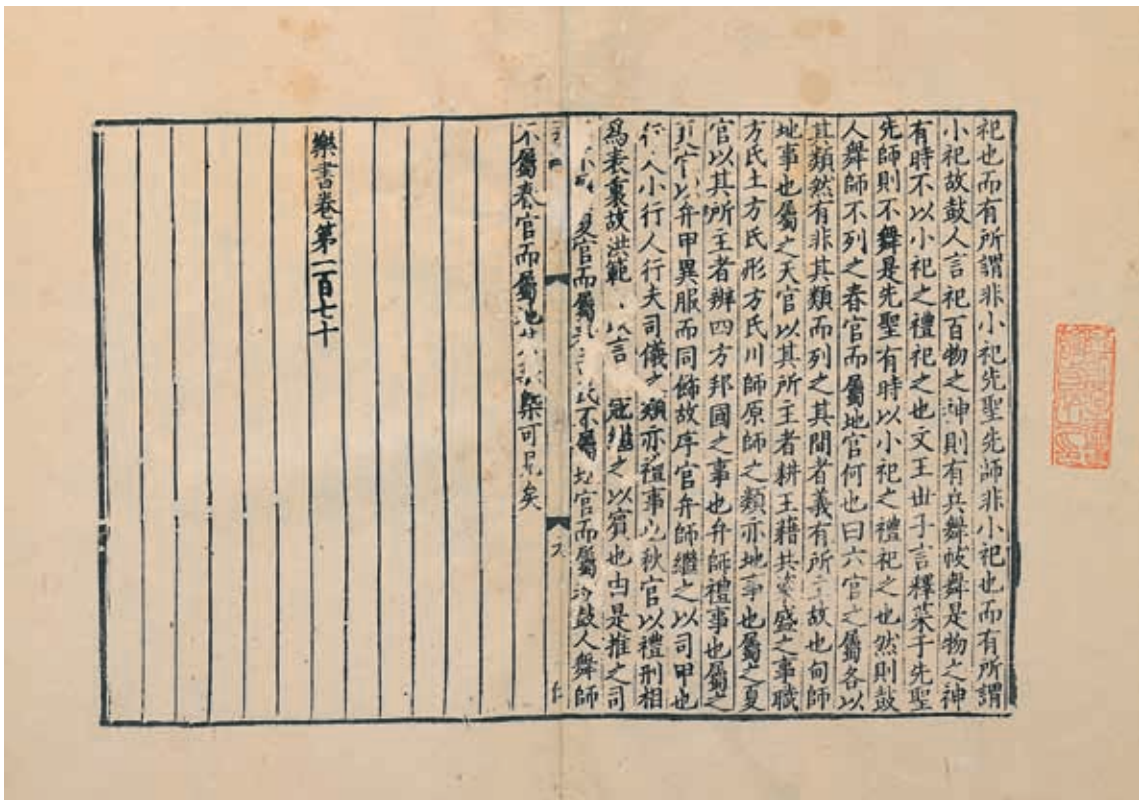 祀也而有所謂非小祀先聖先師非小祀也而有所謂
小祀故鼓人言祀百物之神則有兵舞帗舞是物之神
有時不以小祀之禮祀之也文王世子言釋菜于先聖
先師則不舞是先聖有時以小祀之禮祀之也然則鼓
人舞師不列之春官而屬地官何也曰六官之屬各以
其類然有非其類而列之其間者義有所主故也甸師
地事也屬之天官以其所主者耕王藉共粢盛之事職
方氏土方氏形方氏川師原師之類亦地事也屬之夏
官以其所主者辦四方邦國之事也弁師禮事也屬之
夏官以弁甲異服而同飾故序官弁師繼之以司甲也
行人小行人行夫司儀之類亦禮事也秋官以禮刑相
為表裏故洪範以言寇繼之以賓也由是推之司
夏官而屬氏不屬官而屬鼓人舞師
不屬春官而屬地槩可見矣
樂書卷第一百七十